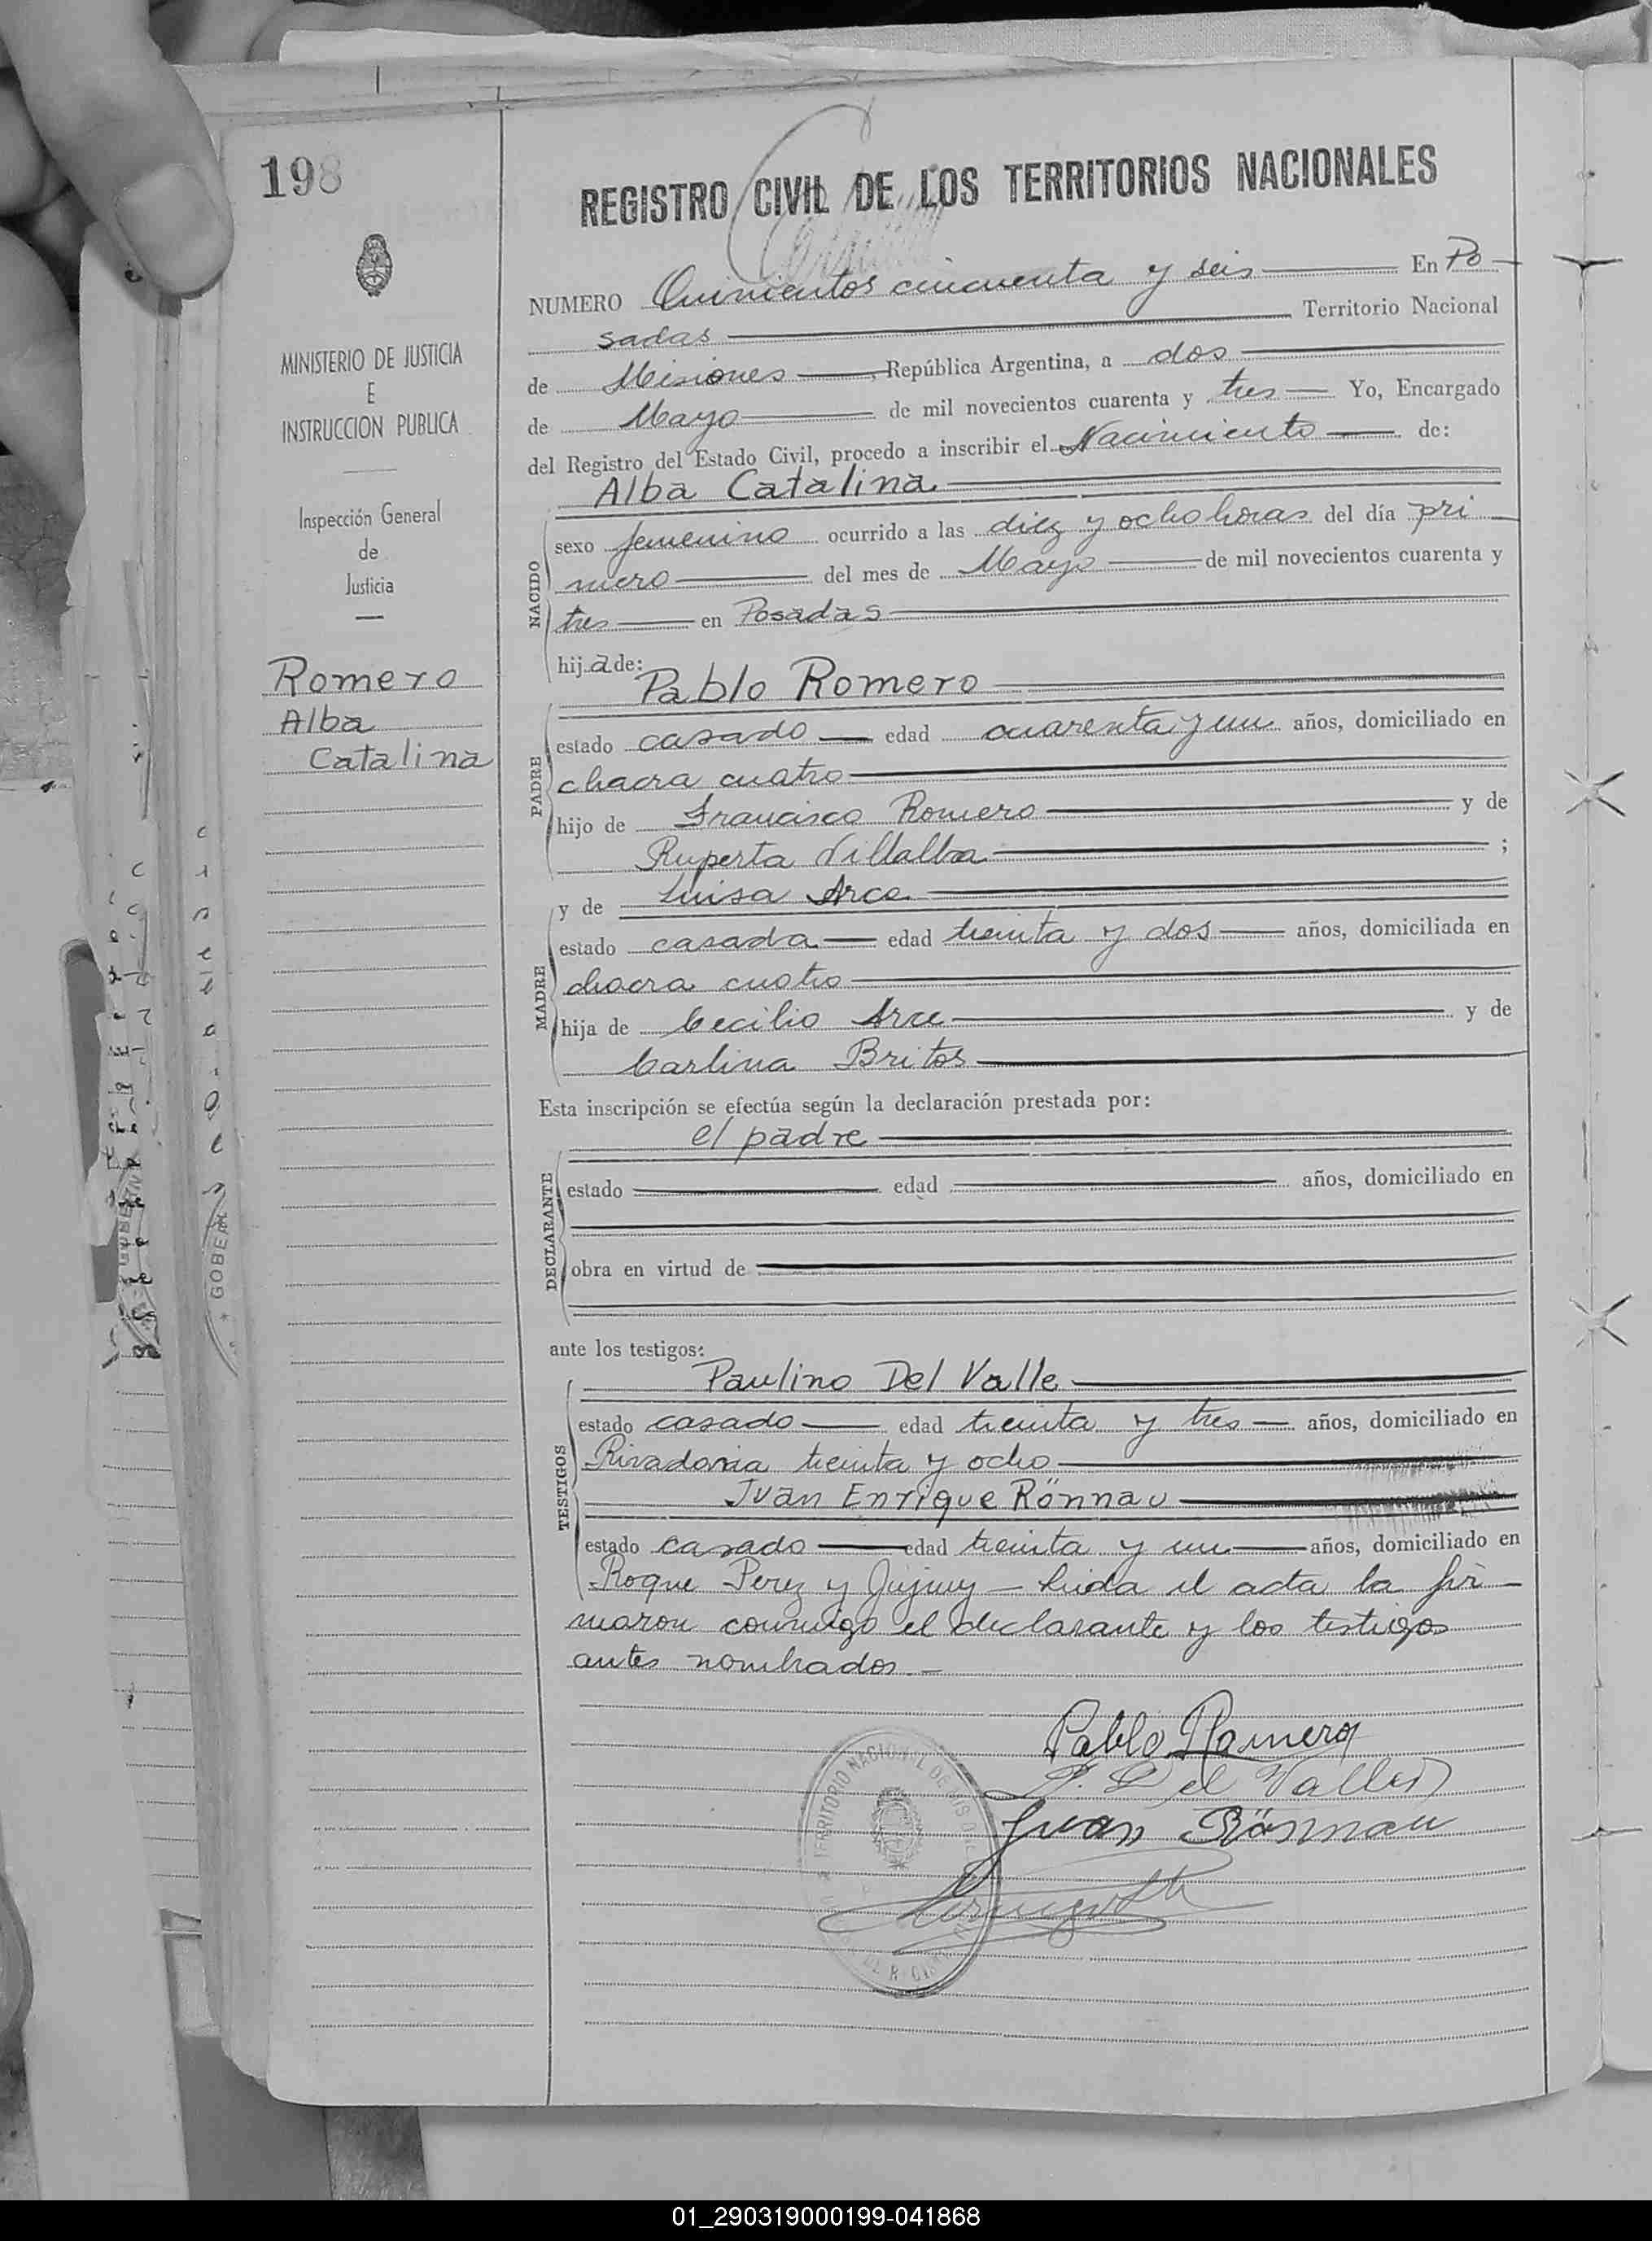 198
REGISTRO CIVIL DE LOS TERRITORIOS NACIONALES
MINISTERIO DE JUSTICIA
E
INSTRUCCION PUBLICA
Inspección General
de
Justicia
Romero
Alba
Catalina
NUMERO Quinientos cincuenta y seis En Po
sadas Territorio Nacional
de Misiones, República Argentina, a dos
de Mayo de mil novecientos cuarenta y tres Yo, Encargado
del Registro del Estado Civil, procedo a inscribir el Nacimiento de:
Alba Catalina
NACIDO
sexo femenino ocurrido a las diez y ocho horas del día pri
mero del mes de Mayo de mil novecientos cuarenta y
tres en Posadas
hija de:
Pablo Romero
PADRE
estado casado edad cuarenta y un años, domiciliado en
chacra cuatro
hijo de Francisco Romero y de
Ruperta Villalba ;
y de Luisa Arce
MADRE
estado casada edad treinta y dos años, domiciliada en
chacra cuatro
hija de Cecilio Arce y de
Carlina Britos
Esta inscripción se efectúa según la declaración prestada por:
el padre
DECLARANTE
estado edad años, domiciliado en
obra en virtud de
ante los testigos:
Paulino Del Valle
TESTIGOS
estado casado edad treinta y tres años, domiciliado en
Rivadavia treinta y ocho
Juan Enrique Rönnau
estado casado edad treinta y un años, domiciliado en
Roque Perez y Jujuy – Leida el acta la fir
maron conmigo el declarante y los testigos
antes nombrados –
Pablo Romero
P. Del Valle
Juan Rönnau
TERRITORIO NACIONAL DE MISIONES
GOBER
01_290319000199-041868